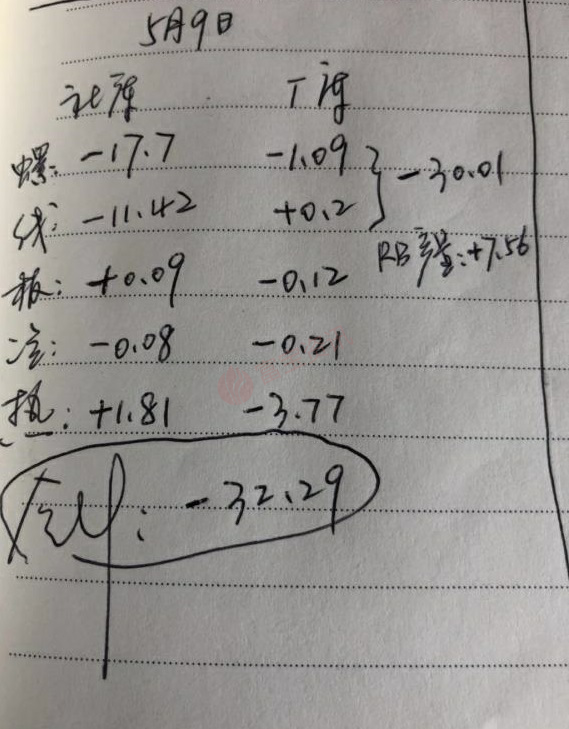 5月9日
社库 厂库
螺: -17.7 -1.09 } -30.01
线: -11.42 +0.2
RB产量:+7.56
板: +0.09 -0.12
冷: -0.08 -0.21
热: +1.81 -3.77
: -32.29